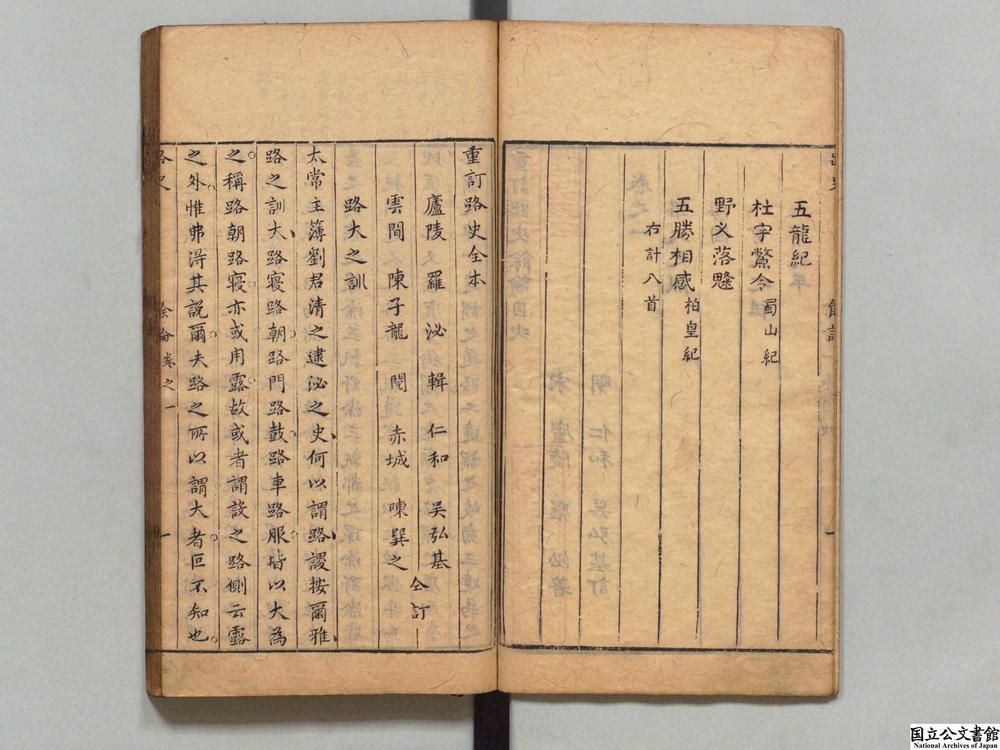 五龍紀
杜宇鱉令 蜀山紀
野叉落魋
五勝相感 柏皇紀
右計八首
重訂路史全本
廬陵 羅泌 輯 仁和 吳弘基
雲間 陳子龍 閱 赤城 陳巽之 仝訂
路大之訓
太常主簿劉君清之逮泌之史何以謂路謖按爾雅
路之訓大路寢路朝路門路鼓路車路服皆以大為
之稱路朝路寢亦或用露故或者謂設之路側云露
之外惟弗得其說爾夫路之所以謂大者叵不知也
余論卷之一
一
国立公文書館
National Archives of Japan